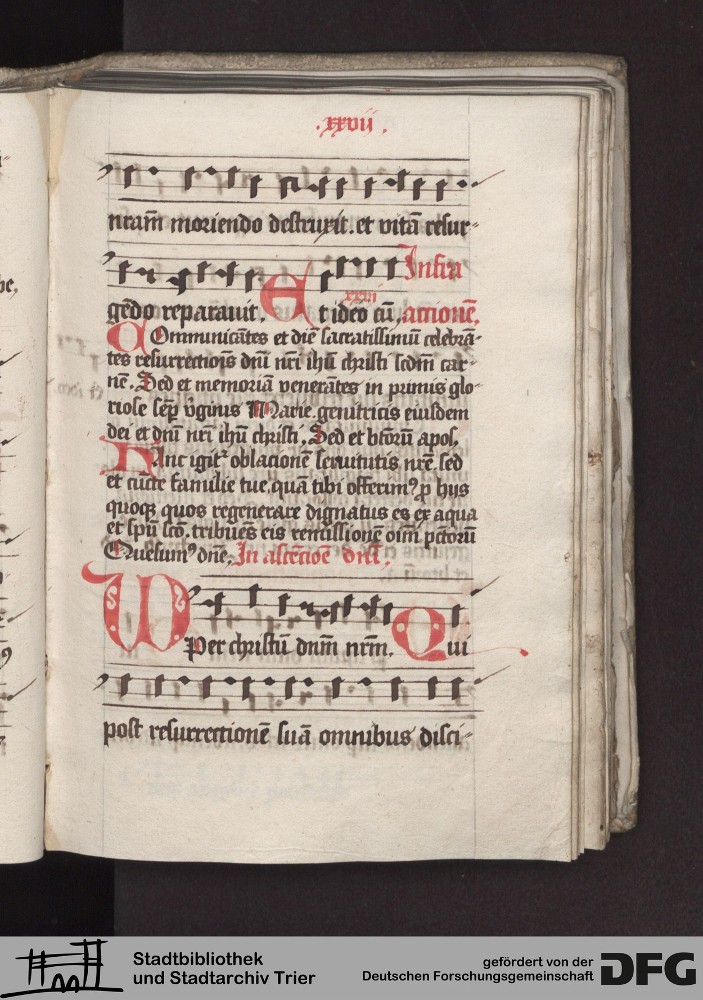 .xxvii.
nrām moriendo destruxit. et vitā resur-
gēdo reparauit. Et ideo cū. Infra
xxiii
actionē.
Communicātes et diē sacratissimū celebrā-
tes resurrectiōis dnī nrī ihū christi scdm̄ car-
nē. Sed et memoriā venerātes in primis glo-
riose semp̄ v̄ginis Marie. genitricis eiusdem
dei et dnī nrī ihū christi. Sed et btōrū apol.
Hanc igitᷣ oblacionē seruitutis nrē. sed
et cūcte familie tue, quā tibi offerimꝰ ꝓ hijs
quoqꝫ quos regenerare dignatus es ex aqua
et spū scō. tribuēs eis remissionē oīm pctōrū
Quesumꝰ dnē. In ascēcioē dnī.
Per christū dnm̄ nrm̄. Qui
post resurrectionē suā omnibus disci-
Stadtbibliothek
und Stadtarchiv Trier
gefördert von der
Deutschen Forschungsgemeinschaft
DFG